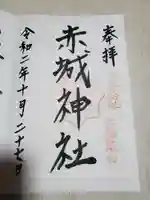 奉拝
赤城神社
令和二年十月二十七日